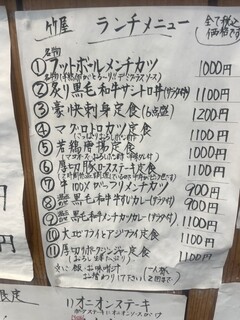 竹屋 ランチメニュー 全て税込価格です
名物
①フットボールメンチカツ 1000円
名物
②炙り黒毛和牛サントロ丼(サラダ付) 1100円
③豪快刺身定食(6点盛) 1200円
④マグロトロカツ定食 1100円
⑤若鶏唐揚定食 1000円
⑥厚切豚ロースステーキ定食 1100円
⑦牛100%がっつりメンチカツ 900円
⑧黒毛和牛すじカレー(サラダ付) 900円
⑨黒毛和牛メンチカツカレー(サラダ付) 1100円
⑩大エビフライとアジフライ定食 1100円
⑪厚切りポークジンジャー定食 1100円
ご飯・お味噌汁
お替わり
⑪オニオンステーキ